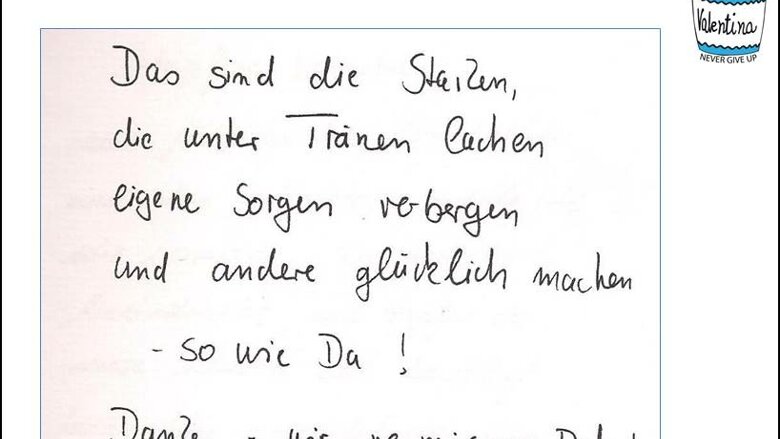 Valentina
NEVER GIVE UP
Das sind die Starken,
die unter Tränen lachen
eigene Sorgen verbergen
und andere glücklich machen
- so wie Du !